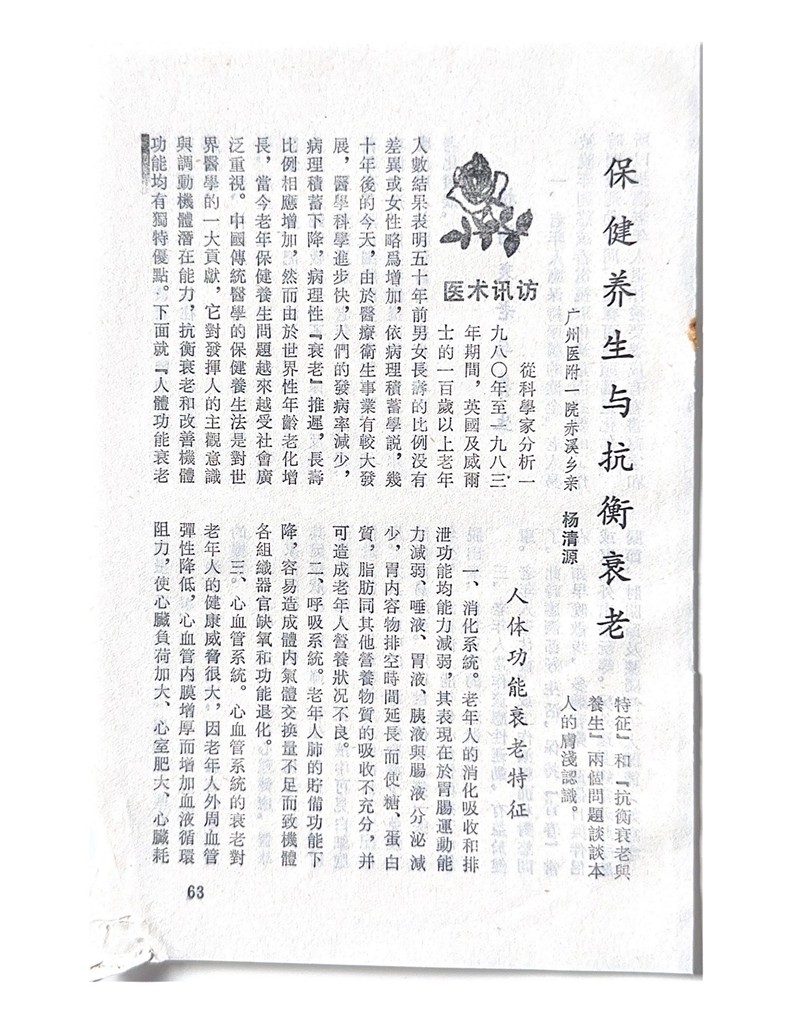 保健养生与抗衡衰老
广州医附一院赤溪乡亲 杨清源
医术讯访
從科學家分析一
九八〇年至一九八三
年期間，英國及威爾
士的一百歲以上老年
人數結果表明五十年前男女長壽的比例没有
差異或女性略爲增加，依病理積蓄學説，幾
十年後的今天，由於醫療衛生事業有較大發
展，醫學科學進步快，人們的發病率減少，
病理積蓄下降，病理性『衰老』推遲，長壽
比例相應增加，然而由於世界性年齡老化增
長，當今老年保健養生問題越來越受社會廣
泛重視。中國傳統醫學的保健養生法是對世
界醫學的一大貢獻，它對發揮人的主觀意識
與調動機體潛在能力，抗衡衰老和改善機體
功能均有獨特優點。下面就『人體功能衰老
特征』和『抗衡衰老與
養生』兩個問題談談本
人的膚淺認識。
人体功能衰老特征
一、消化系統。老年人的消化吸收和排
泄功能均能力減弱，其表現在於胃腸運動能
力減弱、唾液、胃液、胰液與腸液分泌減
少，胃内容物排空時間延長而使糖、蛋白
質，脂肪同其他營養物質的吸收不充分，并
可造成老年人營養狀况不良。
二、呼吸系統。老年人肺的貯備功能下
降，容易造成體内氣體交換量不足而致機體
各組織器官缺氧和功能退化。
三、心血管系統。心血管系統的衰老對
老年人的健康威脅很大，因老年人外周血管
彈性降低，心血管内膜增厚而增加血液循環
阻力，使心臟負荷加大、心室肥大、心臟耗
63